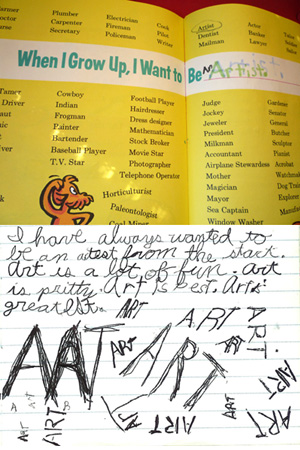 Farmer Plumber Electrician Cook Artist Actor
Doctor Carpenter Fireman Pilot Dentist Banker
Nurse Secretary Policeman Writer Mailman Lawyer
When I Grow Up, I Want to Be an Artist.
Tamer Cowboy Football Player Judge Gardener
Driver Indian Hairdresser Jockey Senator
Frogman Dress designer Jeweler General
Painter Mathematician President Butcher
Bartender Stock Broker Milkman Sculptor
Baseball Player Movie Star Accountant Pianist
T.V. Star Photographer Airplane Stewardess Acrobat
Telephone Operator Mother Watchmaker
Horticulturist Magician Dog Trainer
Paleontologist Mayor Explorer
Sea Captain Manufacturer
Window Washer
I have always wanted to
be an artest from the start.
Art is a lot of fun. Art
is pretty. Art is Best. Art is
greatest.
ART
ART
ART
AAT
ART
ART
ART
ART
ART
ART
ART
ART
ART
ART